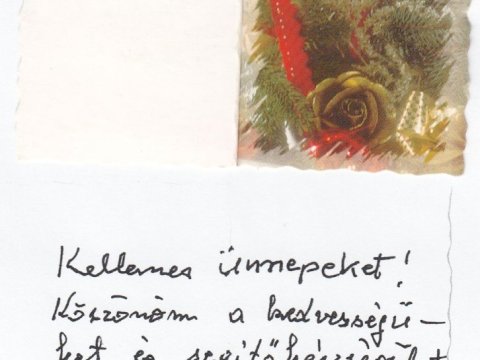 Kellemes ünnepeket!
Köszönöm a kedvességü-
ket és segítőkészségüket